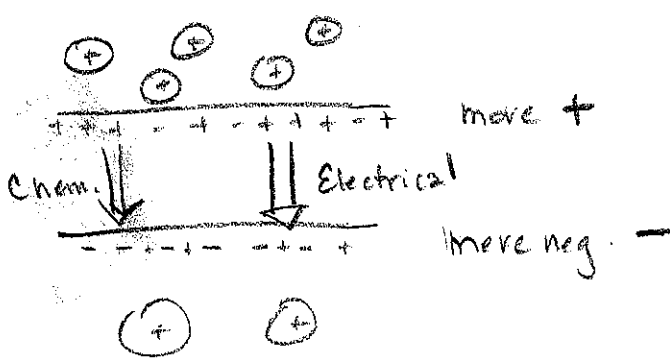 + + + + +
+ + + - + - + + + - + move +
Chem. Electrical
- - + - + - - + - + move neg. -
+ +